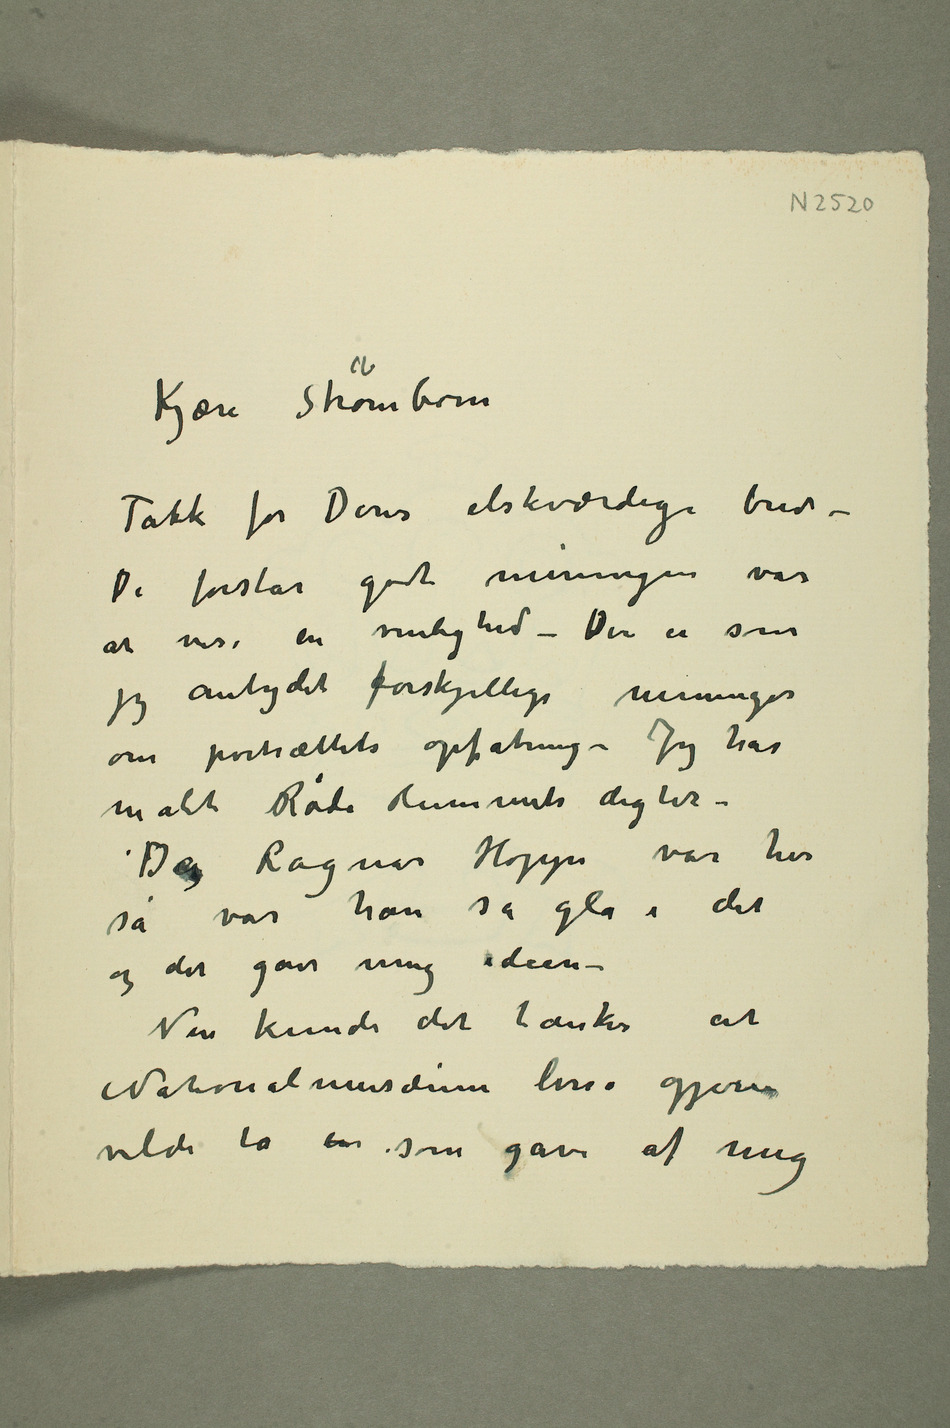 N 2520
Kjære Strömbom
Takk for Deres elskværdige brev –
De forstår godt meningen var
at vise en venlighed – Der er som
jeg antydet forskjellige meninger
om portrættets opfatning – Jeg har
malt Röde Rummets digter –
Da Ragnar Hoppe var her
så var han så gla i det
og det gav mig ideen –
Nu kunde det tænkes at
Nationalmusæum  gjerne
vilde ta  som gave af mig